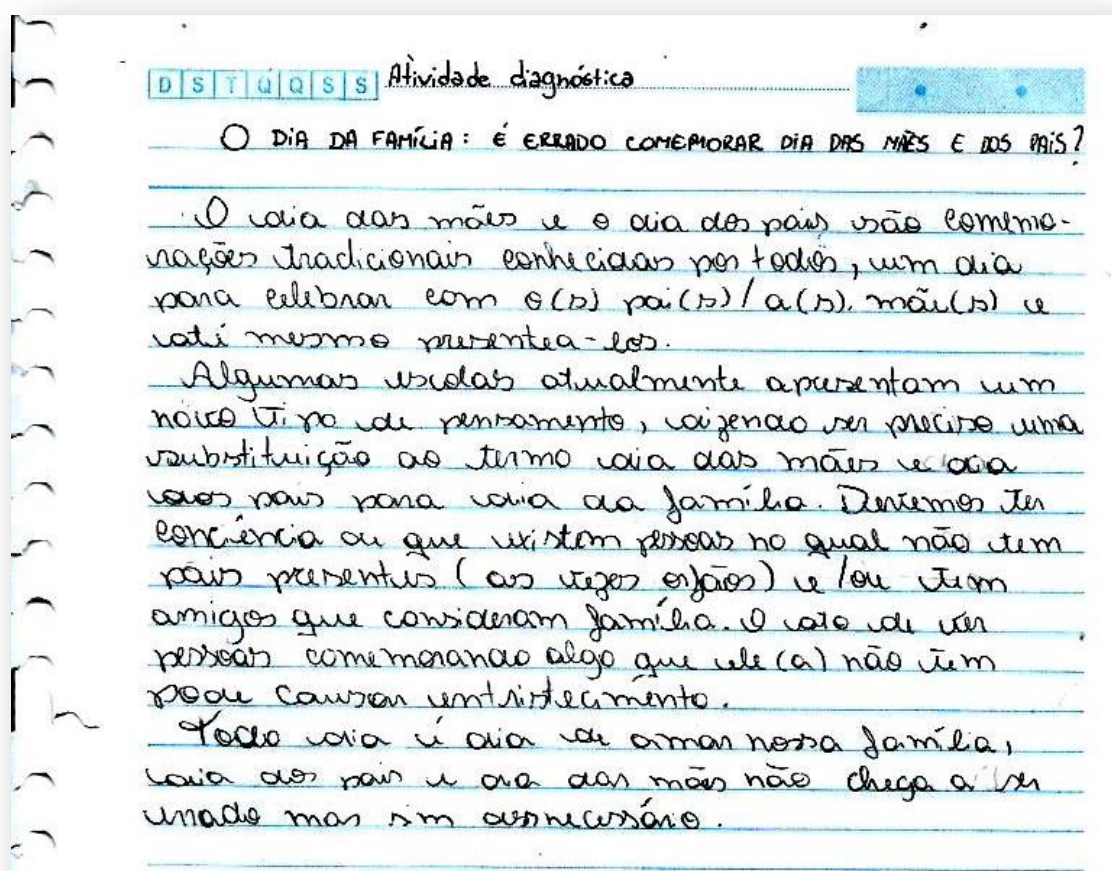 D S T Q Q S S Atividade diagnóstica
O DIA DA FAMÍLIA: É ERRADO COMEMORAR DIA DAS MÃES E DOS PAIS?
O dia das mães e o dia dos pais são comemo-
rações tradicionais conhecidas por todos, um dia
para celebrar com o(s) pai(s)/a(s). mãe(s) e
até mesmo presentea-los.
Algumas escolas atualmente apresentam um
novo tipo de pensamento, dizendo ser preciso uma
substituição ao termo dia das mães e dia
dos pais para dia da família. Devemos ter
conciência de que existem pessoas no qual não tem
pais presentes (as vezes orfãos) e/ou tem
amigos que consideram família. O ato de ver
pessoas comemorando algo que ele(a) não tem
pode causar entristecimento.
Todo dia é dia de amar nossa família,
dia dos pais e dia das mães não chega a ser
errado mas sim desnecessário.